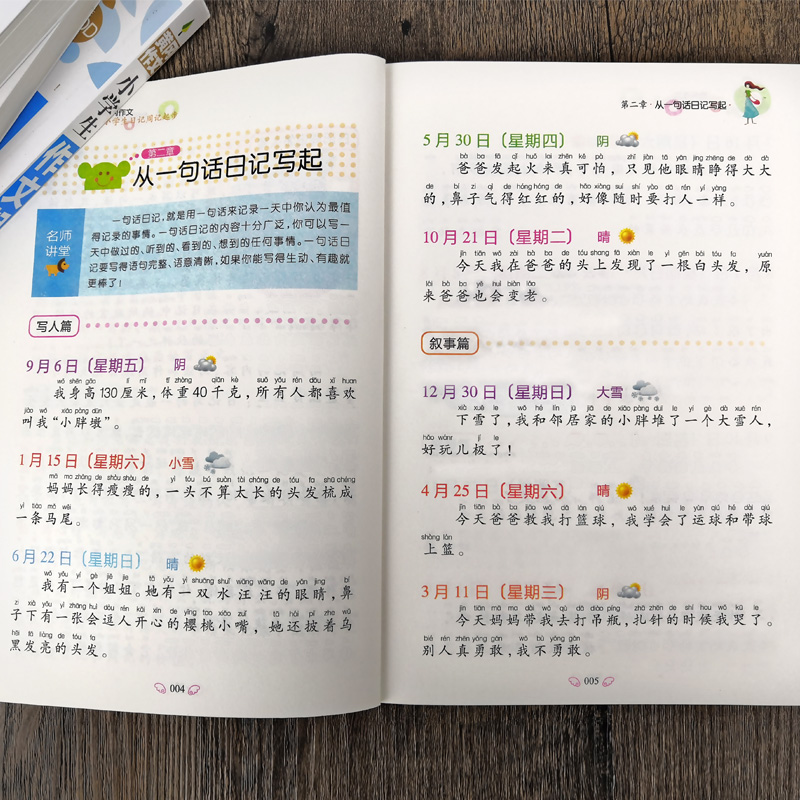 小学生
作文
作文
小学生日记周记起步
第二章
从一句话日记写起
名师
讲堂
一句话日记,就是用一句话来记录一天中你认为最值
得记录的事情。一句话日记的内容十分广泛,你可以写一
天中做过的、听到的、看到的、想到的任何事情。一句话日
记要写得语句完整、语意清晰,如果你能写得生动、有趣就
更棒了!
写人篇
9月6日(星期五) 阴
wǒ shēn gāo lí mǐ tǐ zhòng qiān kè suǒ yǒu rén dōu xǐ huan
我身高130厘米,体重40千克,所有人都喜欢
jiào wǒ xiǎo pàng dūn
叫我“小胖墩”。
1月15日(星期六) 小雪
mā ma zhǎng de shòu shòu de yì tóu bú suàn tài cháng de tóu fa shū chéng
妈妈长得瘦瘦的,一头不算太长的头发梳成
yì tiáo mǎ wěi
一条马尾。
6月22日(星期日) 晴
wǒ yǒu yí gè jiě jie tā yǒu yì shuāng shuǐ wāng wāng de yǎn jing bí
我有一个姐姐。她有一双水汪汪的眼睛,鼻
zi xià yǒu yì zhāng huì dòu rén kāi xīn de yīng táo xiǎo zuǐ tā hái pī zhe wū
子下有一张会逗人开心的樱桃小嘴,她还披着乌
hēi fā liàng de tóu fa
黑发亮的头发。
004
第二章·从一句话日记写起·
5月30日(星期四) 阴
bà ba fā qǐ huǒ lái zhēn kě pà zhǐ jiàn tā yǎn jing zhēng de dà dà
爸爸发起火来真可怕,只见他眼睛睁得大大
de bí zi qì de hóng hóng de hǎo xiàng suí shí yào dǎ rén yí yàng
的,鼻子气得红红的,好像随时要打人一样。
10月21日(星期二) 晴
jīn tiān wǒ zài bà ba de tóu shang fā xiàn le yì gēn bái tóu fa yuán
今天我在爸爸的头上发现了一根白头发,原
lái bà ba yě huì biàn lǎo
来爸爸也会变老。
叙事篇
12月30日(星期日) 大雪
xià xuě le wǒ hé lín jū jiā de xiǎo pàng duī le yí gè dà xuě rén
下雪了,我和邻居家的小胖堆了一个大雪人,
hǎo wánr jí le
好玩儿极了!
4月25日(星期六) 晴
jīn tiān bà ba jiāo wǒ dǎ lán qiú wǒ xué huì le yùn qiú hé dài qiú
今天爸爸教我打篮球,我学会了运球和带球
shàng lán
上篮。
3月11日(星期三) 阴
jīn tiān mā ma dài wǒ qù dǎ diào píng zhā zhēn de shí hou wǒ kū le
今天妈妈带我去打吊瓶,扎针的时候我哭了。
bié rén zhēn yǒng gǎn wǒ bù yǒng gǎn
别人真勇敢,我不勇敢。
005